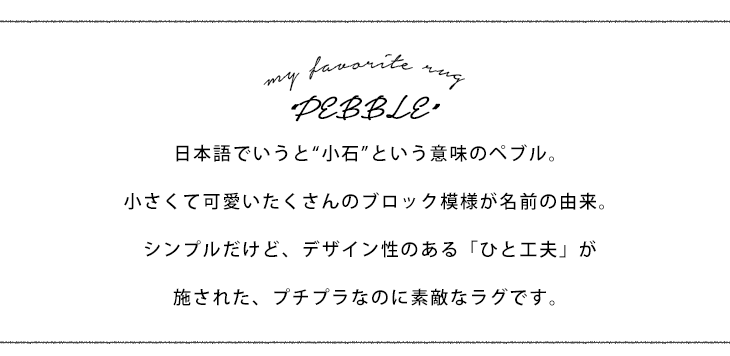 my favorite rug
"PEBBLE"
日本語でいうと“小石”という意味のペブル。
小さくて可愛いたくさんのブロック模様が名前の由来。
シンプルだけど、デザイン性のある「ひと工夫」が
施された、プチプラなのに素敵なラグです。